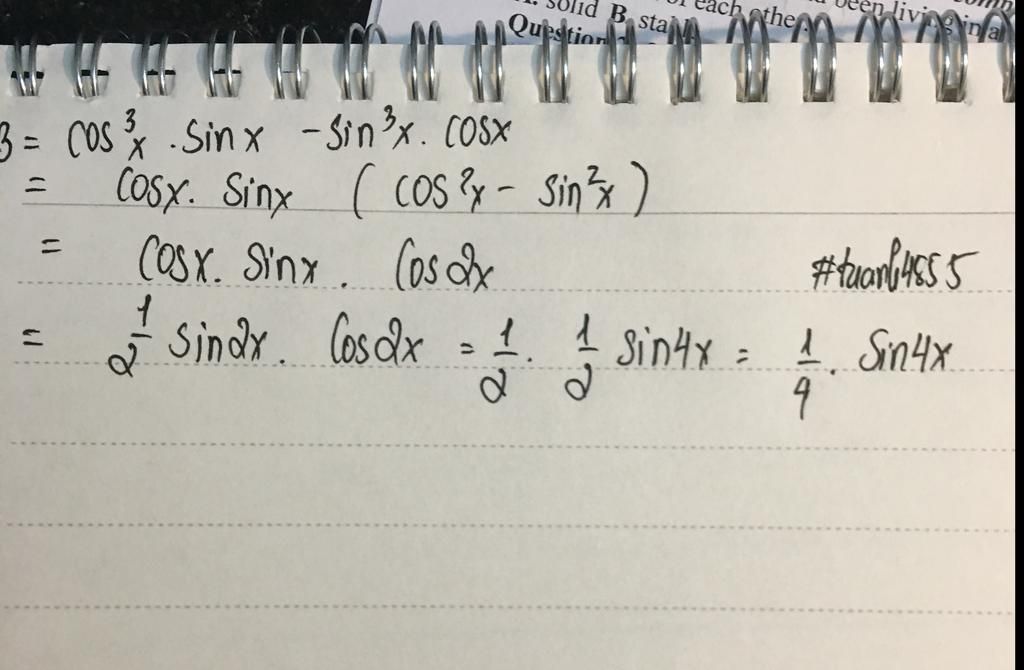 solid B. sta of each othe been living in a
Question
B = cos³x . sinx - sin³x . cosx
= cosx . sinx (cos²x - sin²x)
= cosx . sinx . cos2x
#tuanh4855
= 1/2 sin2x . cos2x = 1/2 . 1/2 sin4x = 1/4 . sin4x